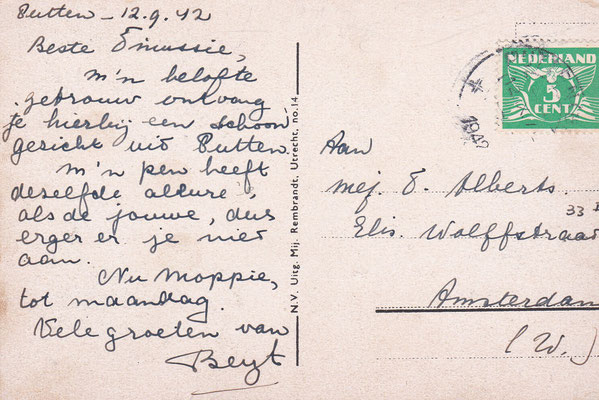 Putten - 12.9.42
Beste Emussie,
m'n belofte
getrouw ontvang
je hierbij een schoon
gezicht uit Putten.
m'n pen heeft
deselfde allure,
als de jouwe, dus
erger er je niet
aan.
Nu Moppie,
tot maandag.
Vele groeten van
Beyt
N.V. Uitg. Mij. Rembrandt, Utrecht, no. 14
NEDERLAND
5
CENT
1942
Aan
mej. E. Alberts.
33
Elis. Wolffstraat
Amsterdam
(W.)